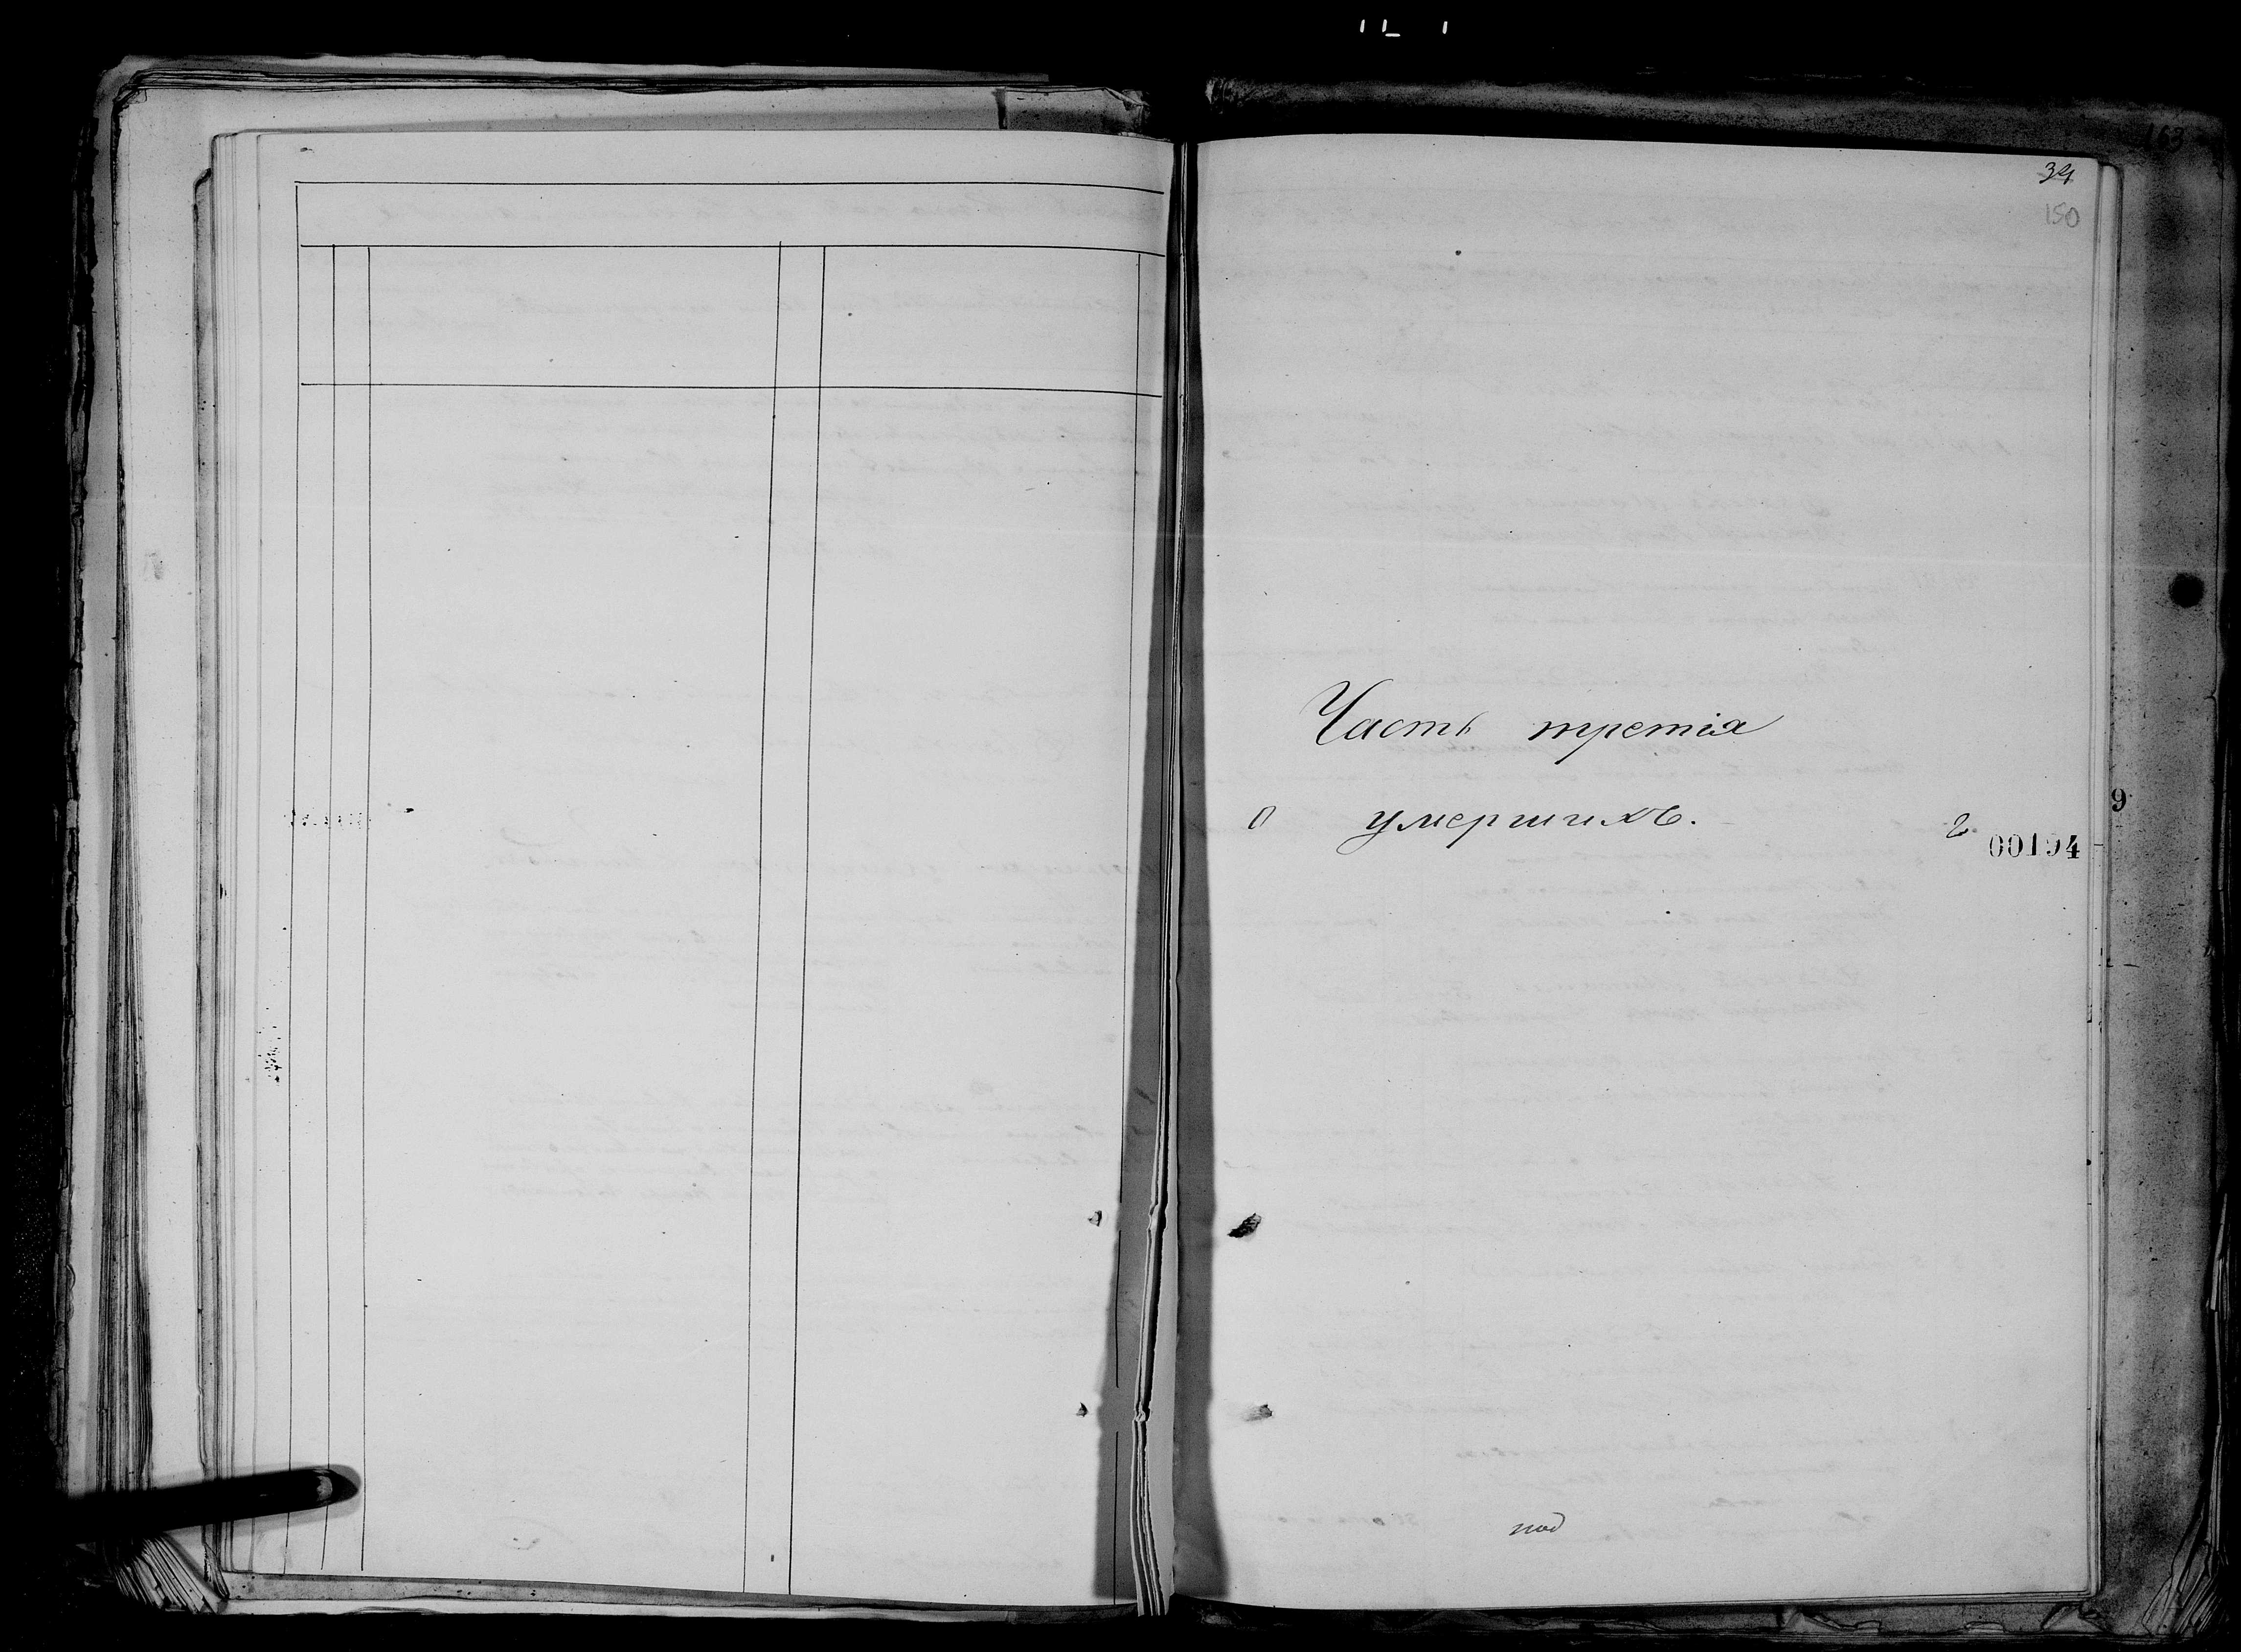 163
34
150
Часть третія
о умершихъ.
00194
9
под